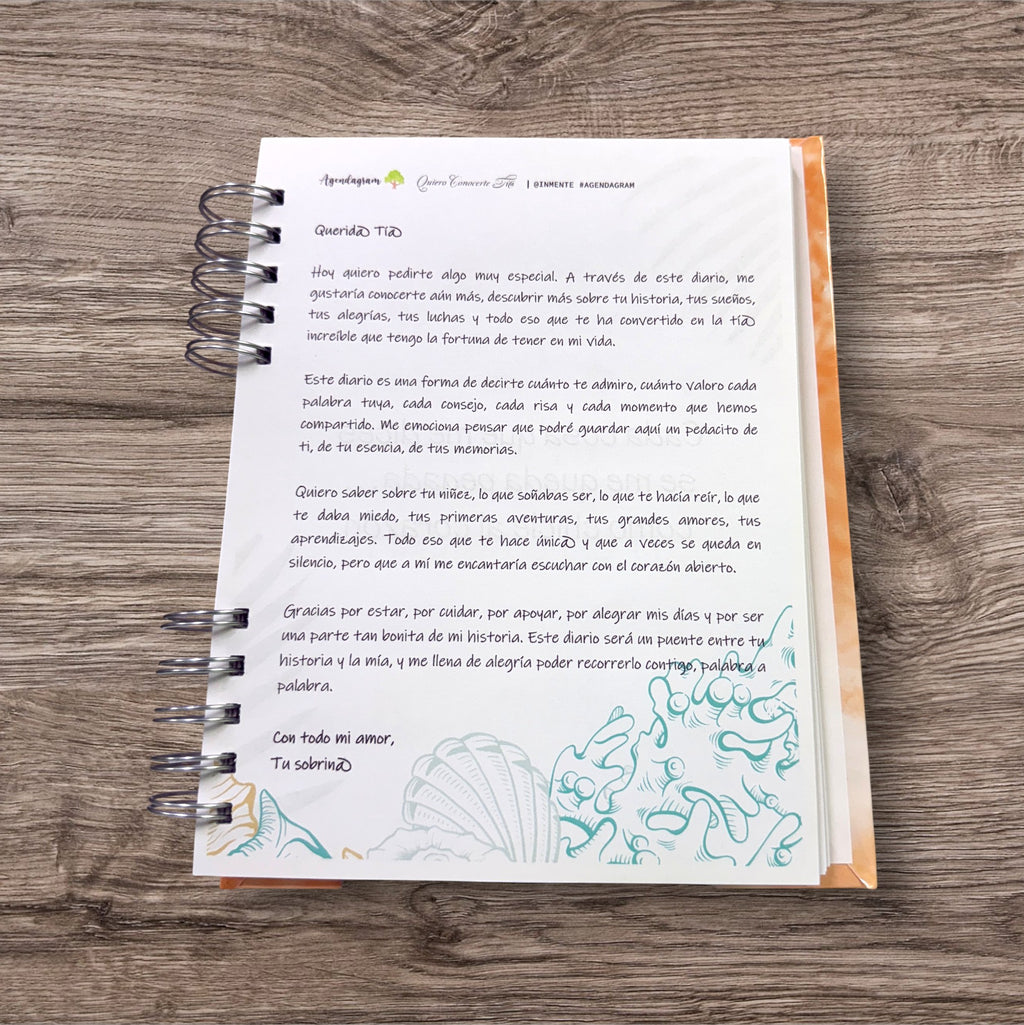 Agendagram Quiero Conocerte Tía | @INMENTE #AGENDAGRAM
Querida Tía
Hoy quiero pedirte algo muy especial. A través de este diario, me
gustaría conocerte aún más, descubrir más sobre tu historia, tus sueños,
tus alegrías, tus luchas y todo eso que te ha convertido en la tía
increíble que tengo la fortuna de tener en mi vida.
Este diario es una forma de decirte cuánto te admiro, cuánto valoro cada
palabra tuya, cada consejo, cada risa y cada momento que hemos
compartido. Me emociona pensar que podré guardar aquí un pedacito de
ti, de tu esencia, de tus memorias.
Quiero saber sobre tu niñez, lo que soñabas ser, lo que te hacía reír, lo que
te daba miedo, tus primeras aventuras, tus grandes amores, tus
aprendizajes. Todo eso que te hace única y que a veces se queda en
silencio, pero que a mí me encantaría escuchar con el corazón abierto.
Gracias por estar, por cuidar, por apoyar, por alegrar mis días y por ser
una parte tan bonita de mi historia. Este diario será un puente entre tu
historia y la mía, y me llena de alegría poder recorrerlo contigo, palabra a
palabra.
Con todo mi amor,
Tu sobrina